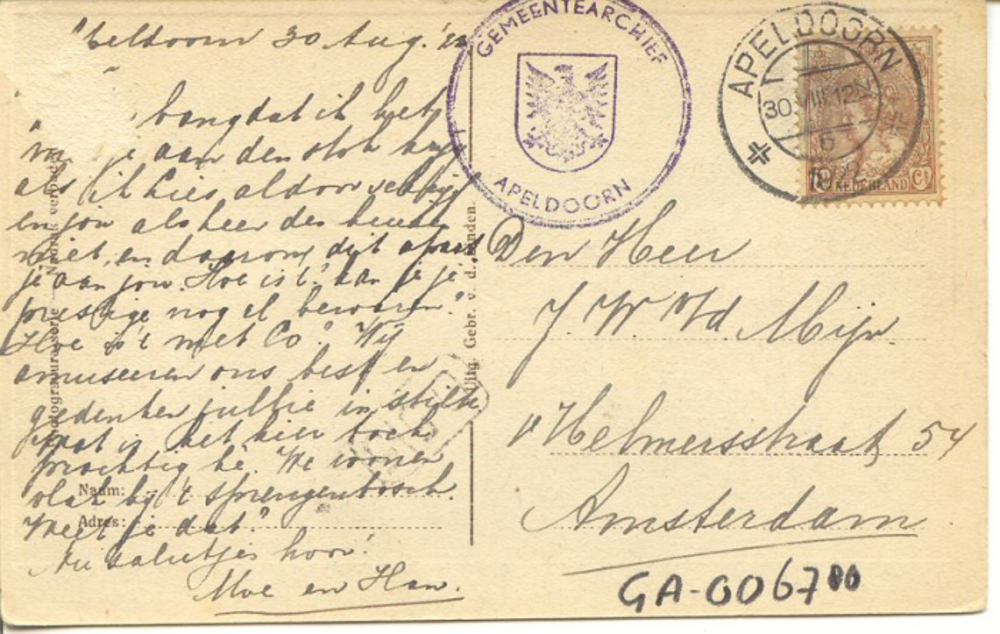 Apeldoorn 30 Aug. '22
bang dat ik het
je aan den stok
als ik
en jou als heer des
niet, en daarom dit apart
je aan jou. Hoe is 't? kan je je
prestige nog al bewaren?
Hoe is 't met Co? Wij
amuseeren ons best en
gedenken jullie in stilte
Wat is het hier toch
prachtig hè. We wonen
vlak bij 't sprengenbosch.
Weet je dat?
Nu saluutjes hoor!
Moe en Han.
Naam:
Adres:
Uitg. Gebr. v. d.
GEMEENTEARCHIEF
APELDOORN
APELDOORN
30.VIII.12N
6
1922
10 NEDERLAND Ct
Den Heer
J. W. v/d Mijn
Helmersstraat 54
Amsterdam
GA-0067